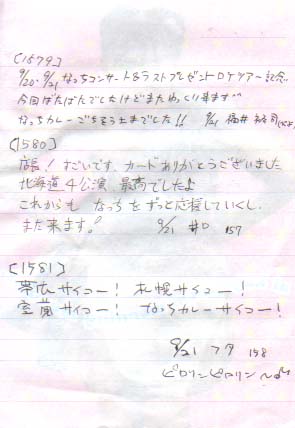 [1579]
9/20・9/21 なっちコンサート&ラストプレゼントロケツアー記念。
今回ばたばたでしたけどまたゆっくり来ます^^
なっちカレーごちそう土までした!! 9/21 福井
[1580]
店長! すごいです、カードありがとうございました
北海道4公演 最高でしたよ
これからも なっちをずっと応援していくし、
また来ます。 9/21 井口 157
[1581]
帯広サイコー! 札幌サイコー!
室蘭サイコー! なっちカレーサイコー!
9/21 フタ 158
ピロリンピロリン〜